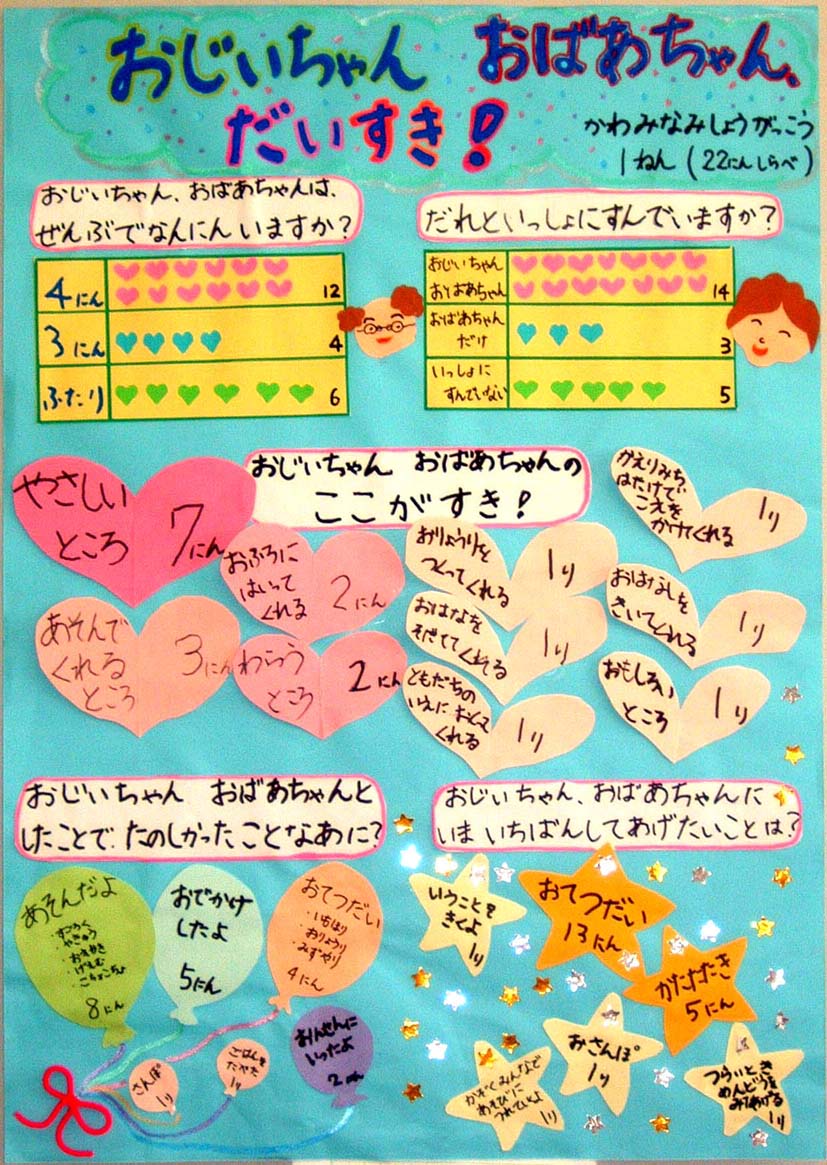 おじいちゃん おばあちゃん、
だいすき!
かわみなみしょうがっこう
1ねん(22にんしらべ)
おじいちゃん、おばあちゃんは、
ぜんぶでなんにんいますか?
4にん 12
3にん 4
ふたり 6
だれといっしょにすんでいますか?
おじいちゃん
おばあちゃん 14
おばあちゃん
だけ 3
いっしょに
すんでいない 5
おじいちゃん おばあちゃんの
ここがすき!
やさしい
ところ 7にん
おふろに
はいって
くれる 2にん
あそんで
くれる
ところ 3にん
わらう
ところ 2にん
おりょうりを
つくってくれる 1り
おはなを
そだててくれる 1り
ともだちの
いえに おくって
くれる 1り
かえりみち
はたけで
こえを
かけてくれる 1り
おはなしを
きいてくれる 1り
おもしろい
ところ 1り
おじいちゃん おばあちゃんと
したことで、たのしかったことなあに?
あそんだよ
・すごろく
・やきゅう
・おえかき
・げえむ
・こちょこちょ
8にん
おでかけ
したよ
5にん
おてつだい
・いちほり
・おりょうり
・みずやり
4にん
さんぽ
1り
ごはんを
たべた
1り
おんせんに
いったよ
2にん
おじいちゃん、おばあちゃんに
いま いちばんしてあげたいことは?
いうことを
きくよ
1り
おてつだい
13にん
かたたたき
5にん
おさんぽ
1り
かぞくみんなで
あそびに
つれていくよ
1り
つらいとき
めんどうを
みてあげる
1り